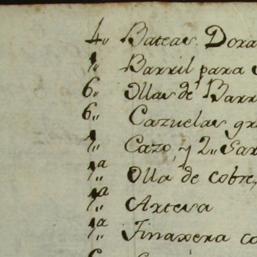 4,, Bateas. Dora
1,, Barril para
6,, Ollas de Barr
6,, Cazuelas gr
1,, Cazo, y 2,, Sar
1ª Olla de cobre,
1ª Artesa
1ª Tinaxera co